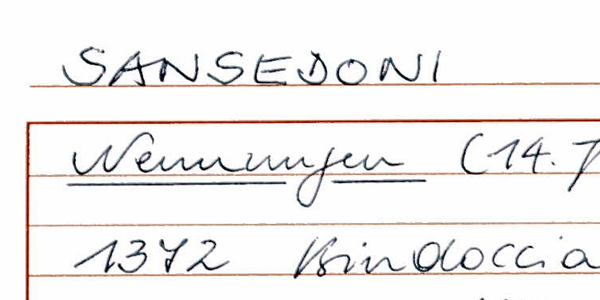 SANSEDONI
Nennungen (14. J
1372 Bindoccia